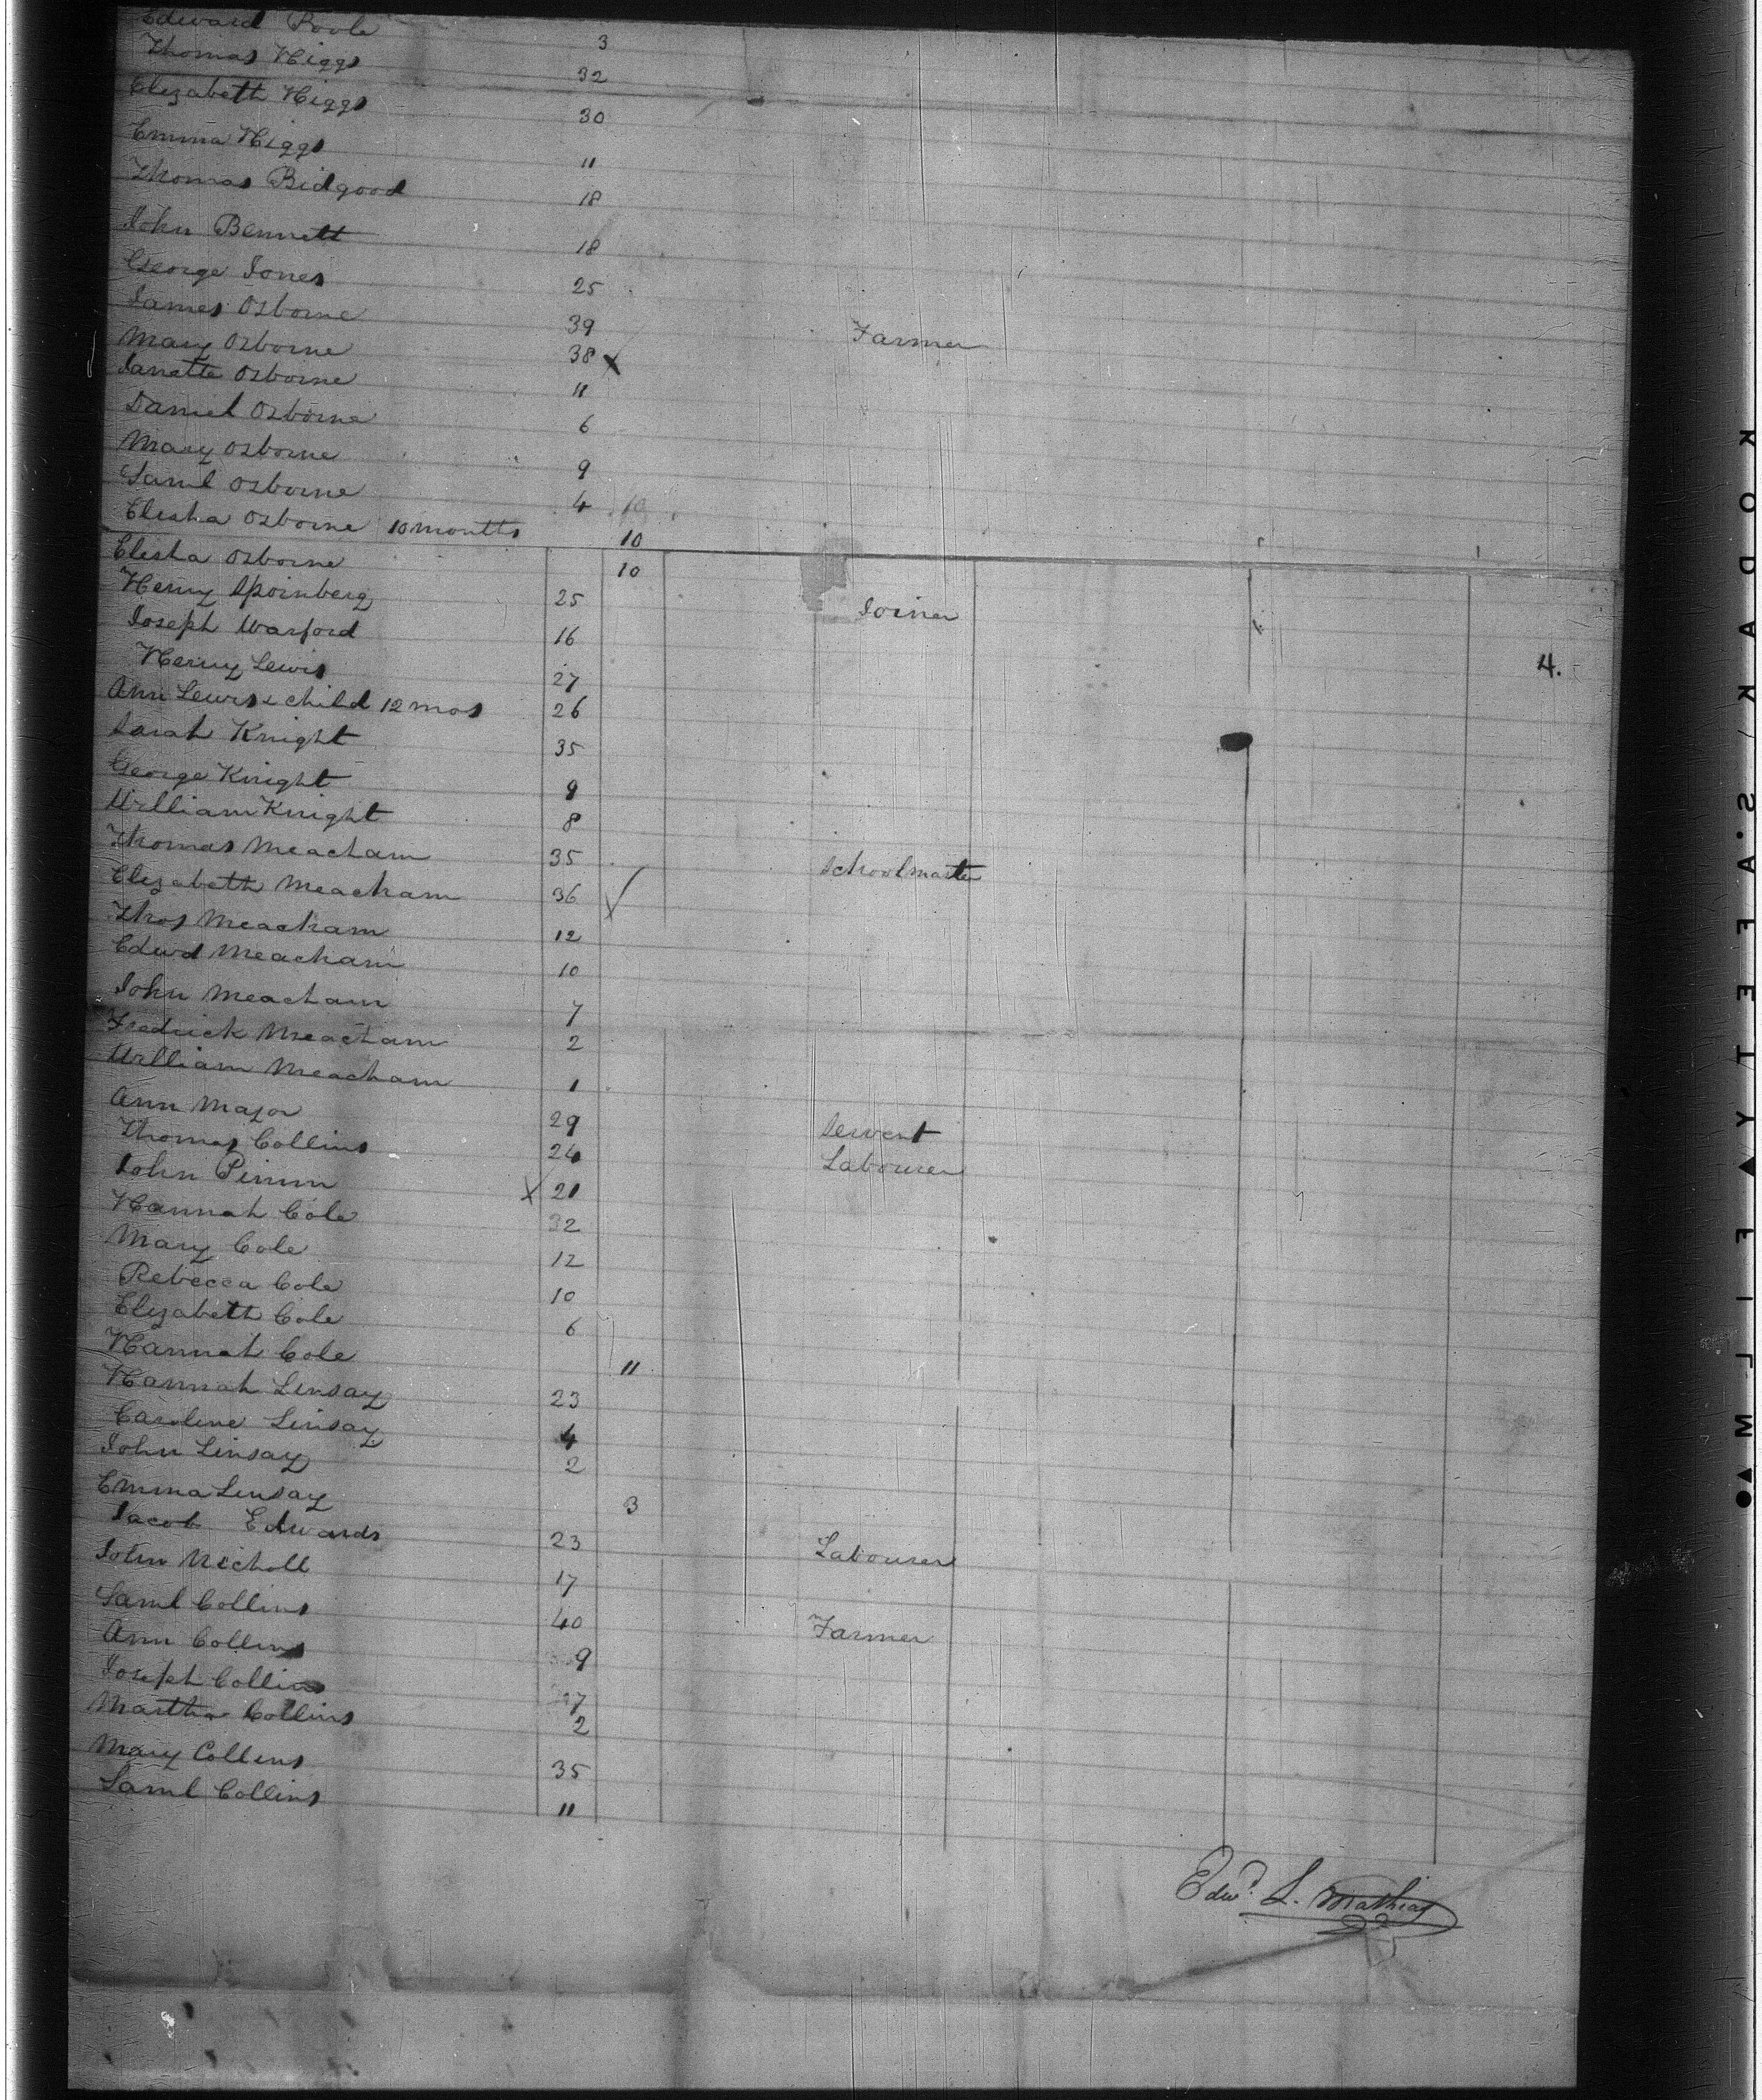 Edward Poole 3
Thomas Higgs 32
Elizabeth Higgs 30
Emma Higgs 11
Thomas Bidgood 18
John Bennett 18
George Jones 25
James Osborne 39 Farmer
Mary Osborne 38
Janatte Osborne 11
Daniel Osborne 6
Mary Osborne 9
Saml Osborne 4 10
Elesha Osborne 10 months 10
Elesha Osborne 10
Henry Spoinberg 25 Joiner
Joseph Warford 16
Henry Lewis 27 4.
Ann Lewis & child 12 mos 26
Sarah Knight 35
George Knight 9
William Knight 8
Thomas Meacham 35 Schoolmaster
Elizabeth Meacham 36
Thos Meacham 12
Edwd Meacham 10
John Meacham 7
Fredrick Meacham 2
William Meacham 1
Ann Major 29 Servent
Thomas Collins 24 Labourer
John Pimm X 21
Hannah Cole 32
Mary Cole 12
Rebecca Cole 10
Elizabeth Cole 6
Hannah Cole 11
Hannah Linsay 23
Caroline Linsay 4
John Linsay 2
Emma Linsay 3
Jacob Edwards 23 Labourer
John Nicholl 17
Saml Collins 40 Farmer
Ann Collins 9
Joseph Collins 7
Martha Collins 2
Mary Collins 35
Saml Collins 11
Edwd. L. Mathias
KODAK / S.A.FETY ▲ FILM ▲●